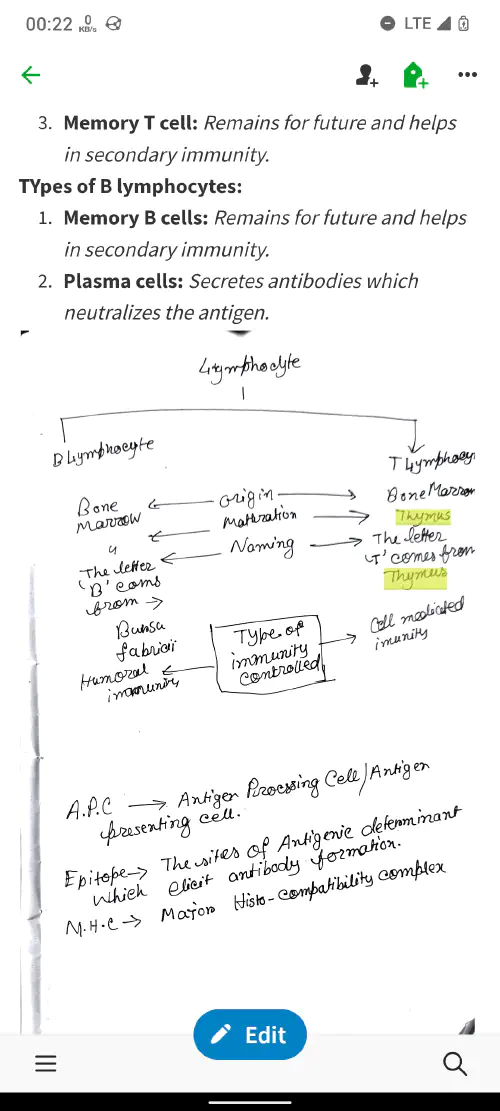 00:22 0 KB/s LTE
3. Memory T cell: Remains for future and helps
in secondary immunity.
TYpes of B lymphocytes:
1. Memory B cells: Remains for future and helps
in secondary immunity.
2. Plasma cells: Secretes antibodies which
neutralizes the antigen.
Lymphocyte
B Lymphocyte
T Lymphocy
Bone Marrow ← origin → Bone Marrow
" ← Maturation → Thymus
The letter 'B' coms from → Bursa fabricii ← Naming → The letter 'T' comes from Thymus
Humoral immunity ← TYPe of immunity controlled → Cell mediated imunity
A.P.C → Antigen Processing Cell/Antigen
presenting cell.
Epitope → The sites of Antigenic determinant
which elicit antibody formation.
M.H.C → Major Histo-compatibility complex
Edit